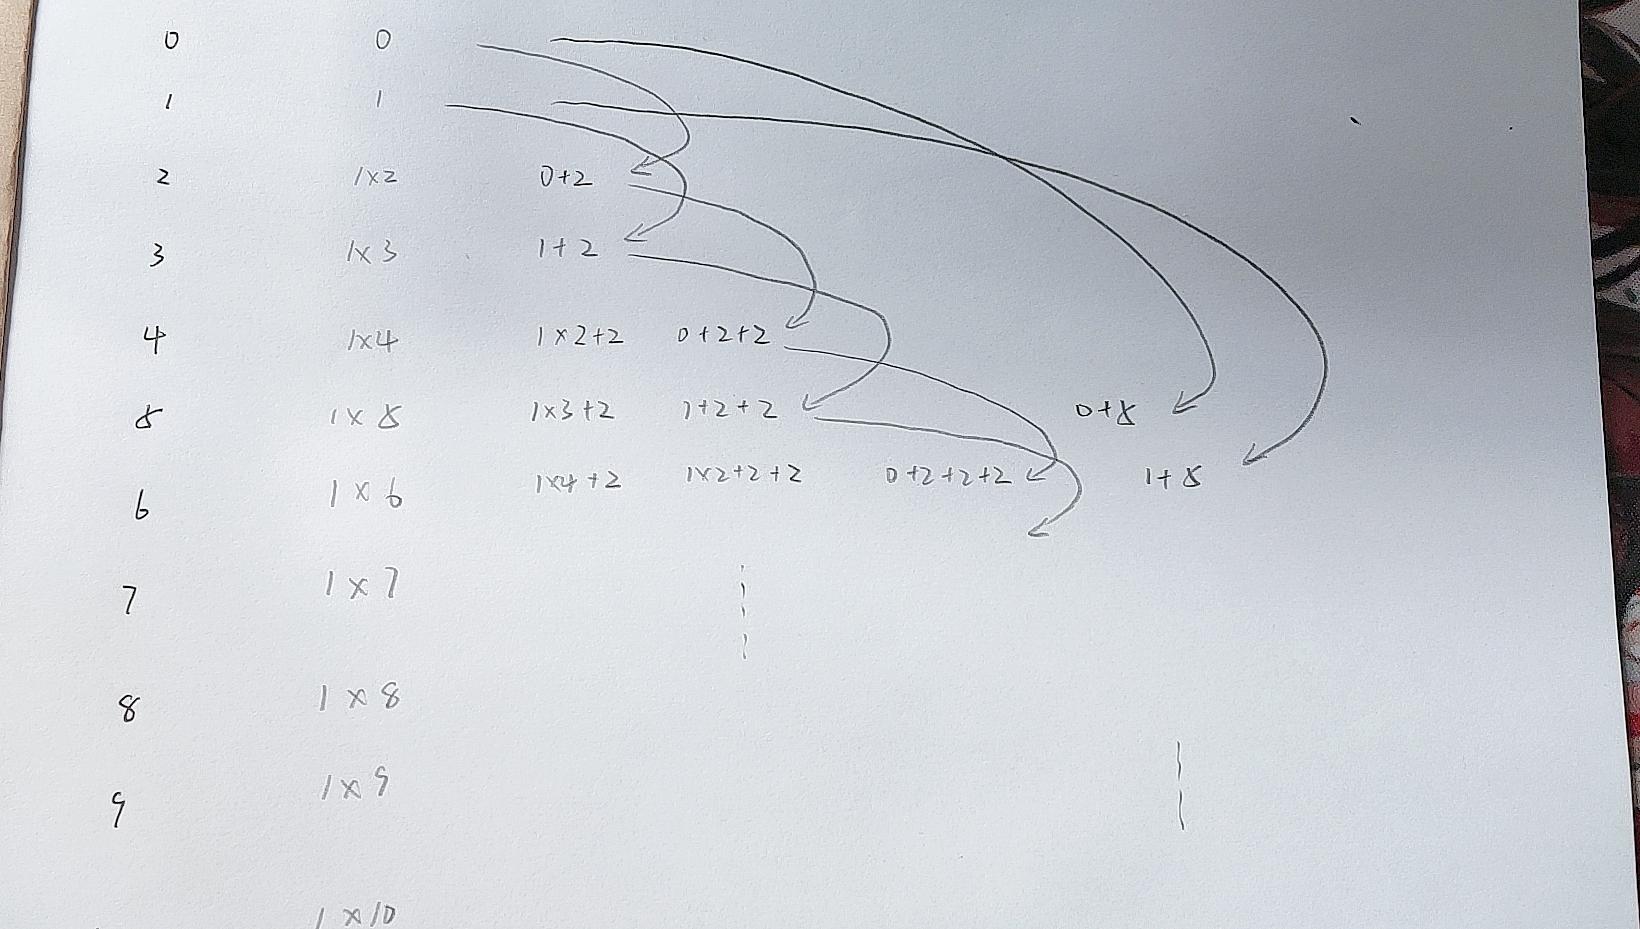 0 0
1 1
2 1×2 0+2
3 1×3 1+2
4 1×4 1×2+2 0+2+2
5 1×5 1×3+2 1+2+2 0+5
6 1×6 1×4+2 1×2+2+2 0+2+2+2 1+5
7 1×7
8 1×8
9 1×9
1×10